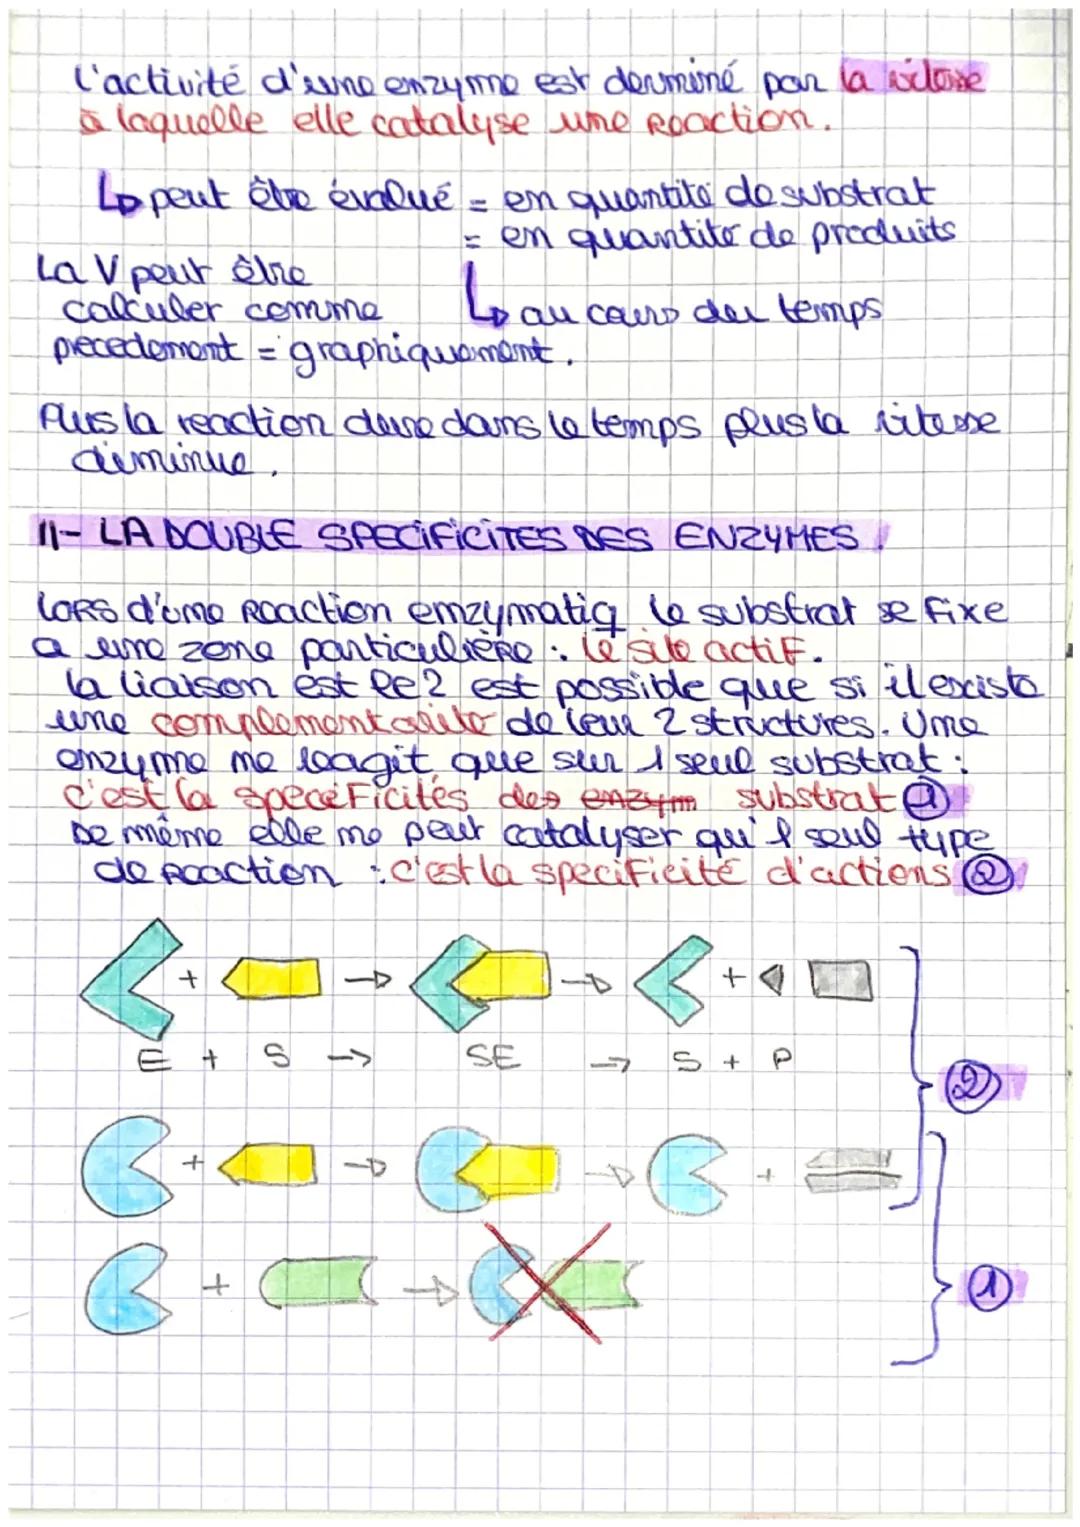 L'activité d'une enzyme est derminé par la vitesse
à laquelle elle catalyse une Réaction.
↳ peut être évalué = en quantité de substrat
= en quantité de produits
La V peut être
calculer comme
↳ au cours du temps
precedement = graphiquement.
Plus la reaction dure dans le temps plus la vitesse
diminue.
II- LA DOUBLE SPECIFICITES DES ENZYMES.
LORS d'une Réaction enzymatiq le substrat se fixe
a une zone particulière : le site actif.
la liaison est les 2 est possible que si il existe
une complementarité de leur 2 structures. Une
enzyme ne réagit que sur 1 seul substrat :
c'est la specificités des enzym substrat ①
De même elle ne peut catalyser qu'1 seul type
de Réaction : c'est la specificité d'actions ②
+ → → +
E + S → SE → S + P
②
+ → → +
+ →
①